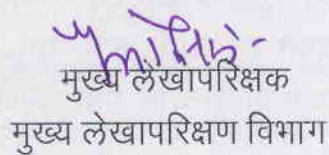 मुख्य लेखापरिक्षक
मुख्य लेखापरिक्षण विभाग